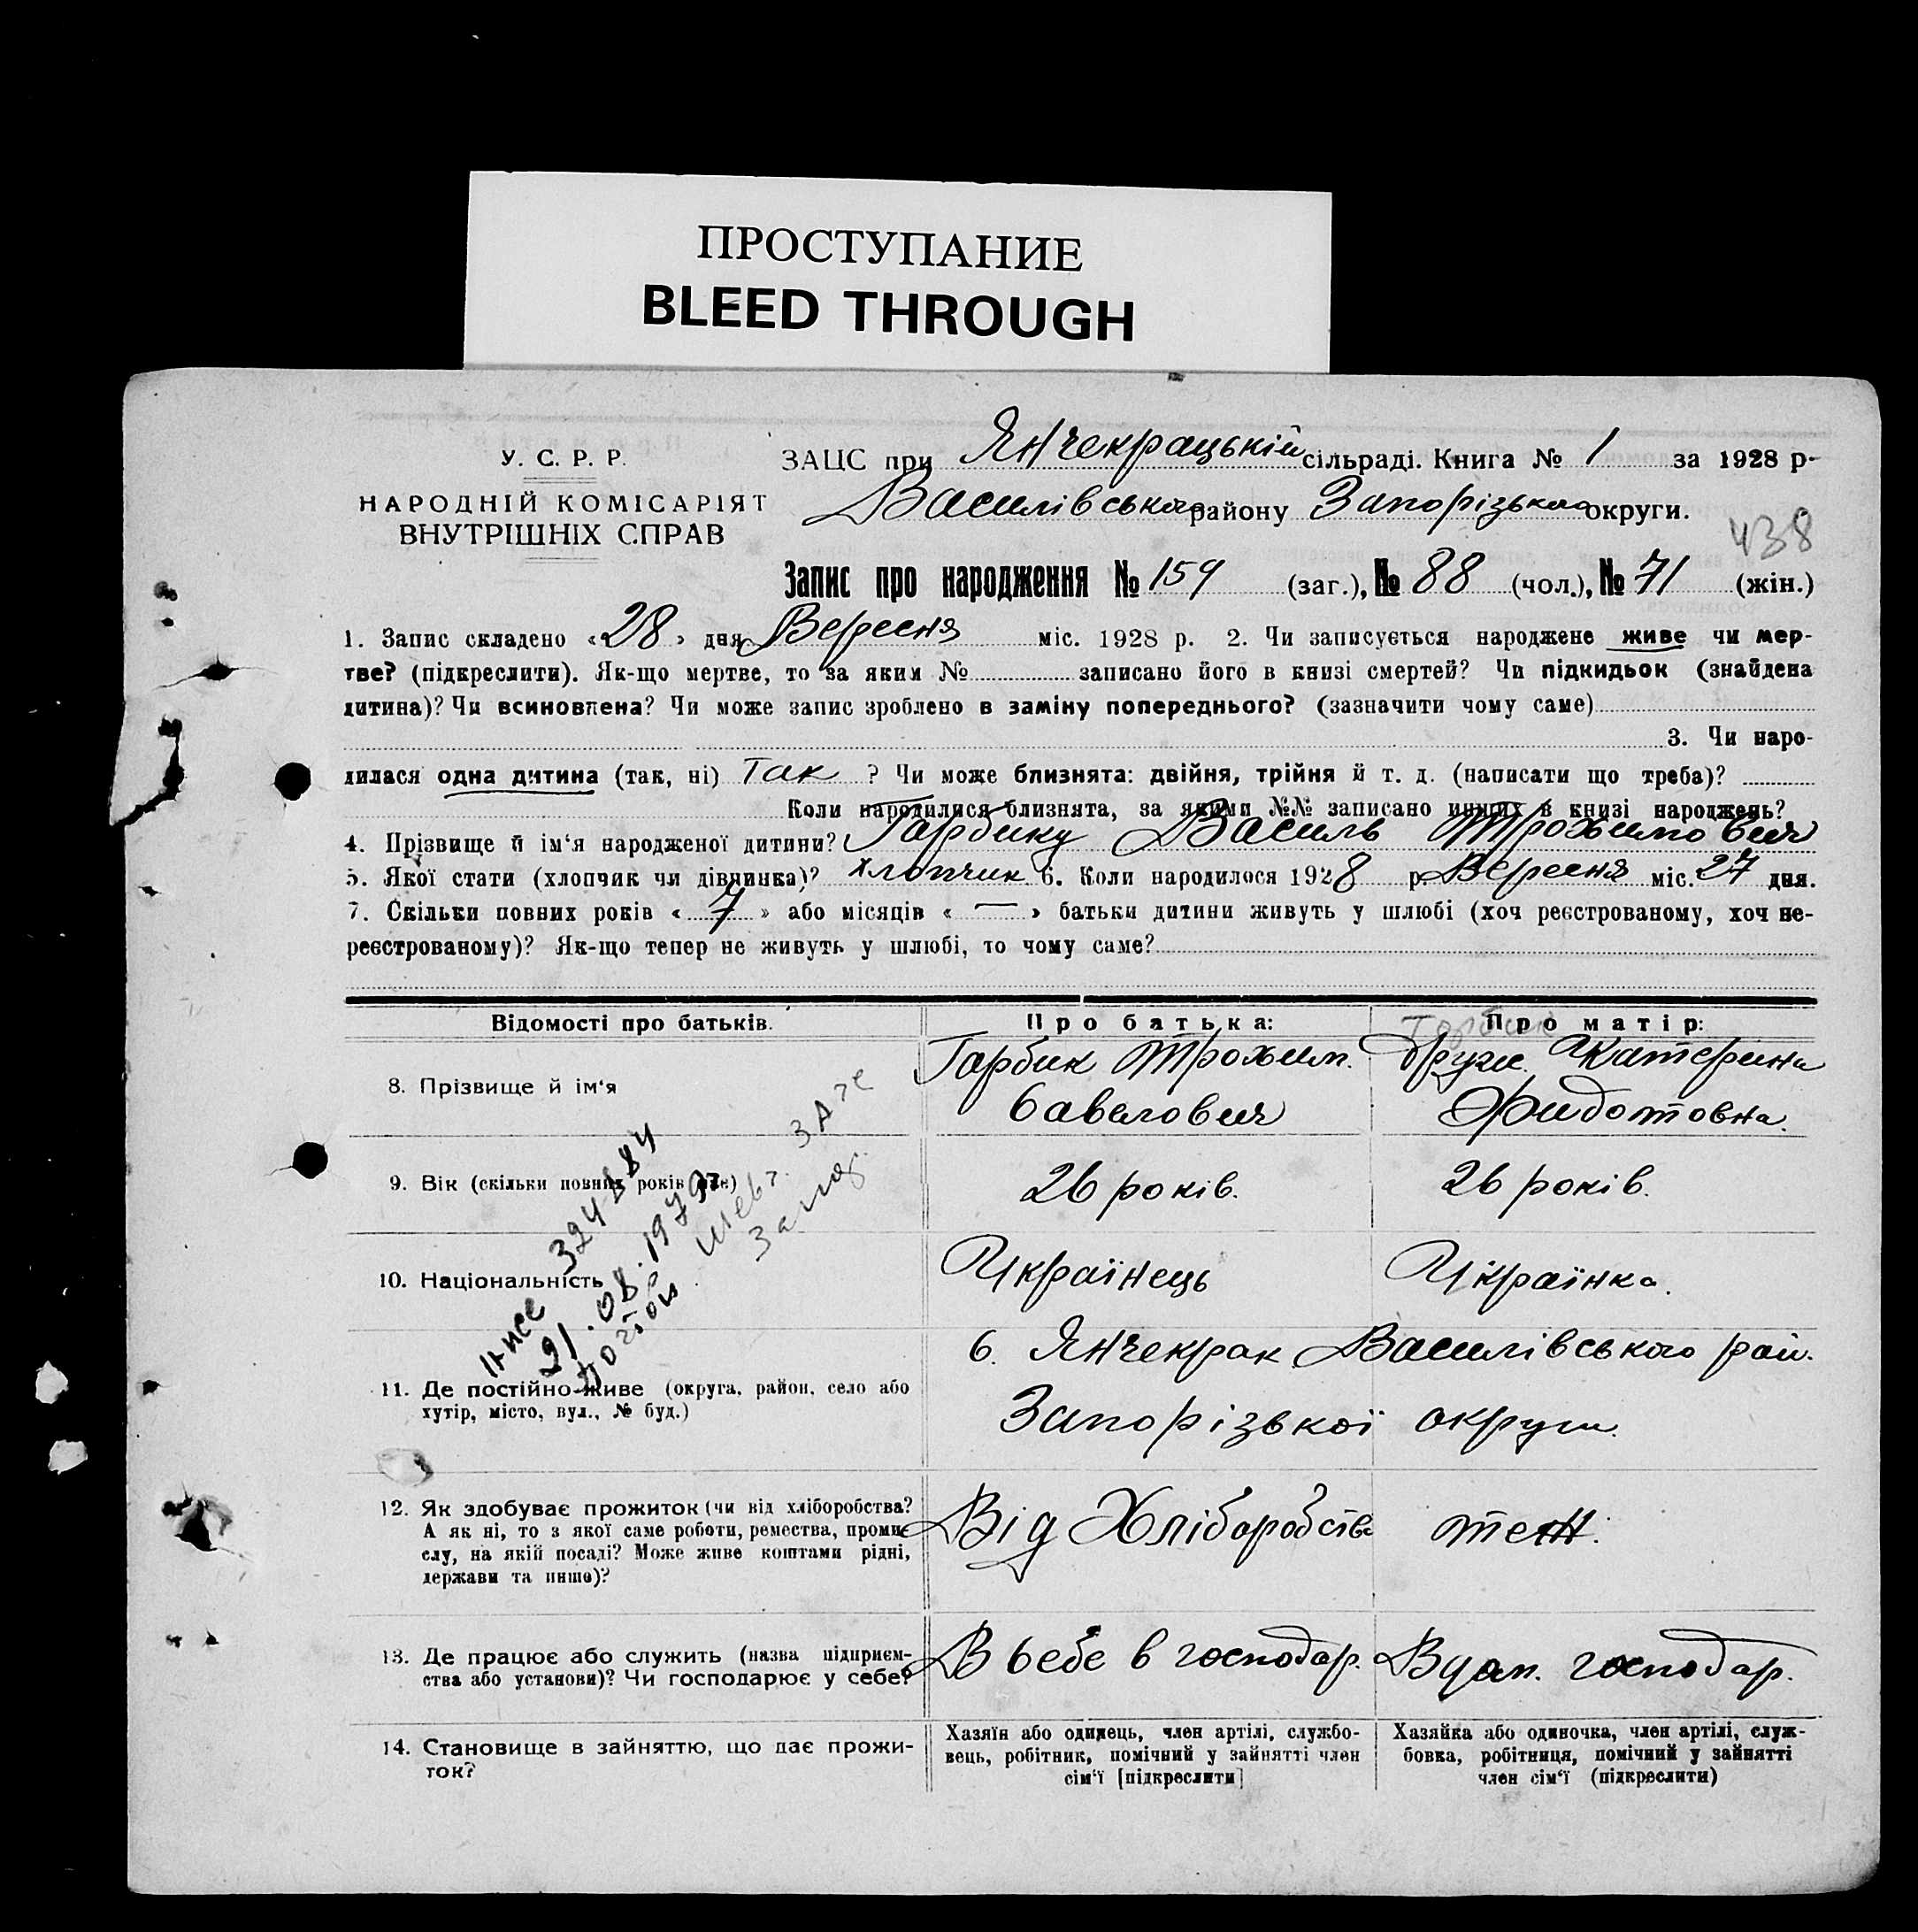 ПРОСТУПАНИЕ
BLEED THROUGH
У. С. Р. Р.
НАРОДНІЙ КОМІСАРІЯТ
ВНУТРІШНІХ СПРАВ
ЗАЦС при Янчекрацькій сільраді. Книга № 1 за 1928 р.
Василівського району Запорізького округи.
438
Запис про народження № 159 (заг.), № 88 (чол.), № 71 (жін.)
1. Запис складено «28» дня Вересня міс. 1928 р. 2. Чи записується народжене живе чи мер-
тве? (підкреслити). Як-що мертве, то за яким № записано його в книзі смертей? Чи підкидьок (знайдена
дитина)? Чи всиновлена? Чи може запис зроблено в заміну попереднього? (зазначити чому саме)
3. Чи наро-
дилася одна дитина (так, ні) Так ? Чи може близнята: двійня, трійня й т. д. (написати що треба)?
Коли народилися близнята, за якими №№ записано инших в книзі народжень?
4. Прізвище й ім'я народженої дитини? Гарбику Василь Трохимович
5. Якої стати (хлопчик чи дівчинка)? хлопчик 6. Коли народилося 1928 р. Вересня міс. 27 дня.
7. Скільки повних років «7» або місяців «—» батьки дитини живуть у шлюбі (хоч реєстрованому, хоч не-
реєстрованому)? Як-що тепер не живуть у шлюбі, то чому саме?
Відомості про батьків. Про батька: Про матір:
8. Прізвище й ім'я
Гарбик Трохим.
Савелович
Друж. Катерина
Фидотовна.
9. Вік (скільки повних років має)
26 років.
26 років.
10. Національність
Українець
Українка.
324884
21.08.1979
11. Де постійно живе (округа, район, село або
хутір, місто, вул., № буд.)
с. Янчекрак Василівського рай.
Запорізької округи.
12. Як здобуває прожиток (чи від хліборобства?
А як ні, то з якої саме роботи, ремества, проми-
слу, на якій посаді? Може живе коштами рідні,
держави та инше)?
Від Хліборобства
теж.
13. Де працює або служить (назва підприєм-
ства або установи)? Чи господарює у себе?
В себе в господар.
В дом. господар.
14. Становище в зайняттю, що дає прожи-
ток?
Хазяїн або одинець, член артілі, службо-
вець, робітник, помічний у зайнятті член
сім'ї [підкреслити]
Хазяйка або одиночка, член артілі, служ-
бовка, робітниця, помічний у зайнятті
член сім'ї (підкреслити)